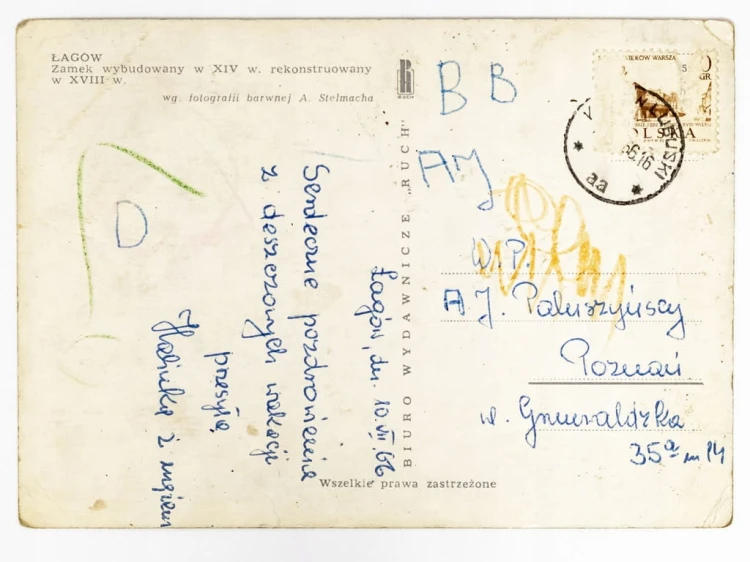 ŁAGÓW
Zamek wybudowany w XIV w. rekonstruowany
w XVIII w.
wg. fotografii barwnej A. Stelmacha
RUCH
BIURO WYDAWNICZE „RUCH"
Wszelkie prawa zastrzeżone
Łagów, dn. 10.VII.66
Serdeczne pozdrowienia
z deszczowych wakacji
przesyła
Halinka z mężem
D
B B
AJ
W.P.
A J. Paluszyńscy
Poznań
ul. Grunwaldzka
35a m 14
WARSZA
GR
POLSKA
LUBUSKI
66.16
aa